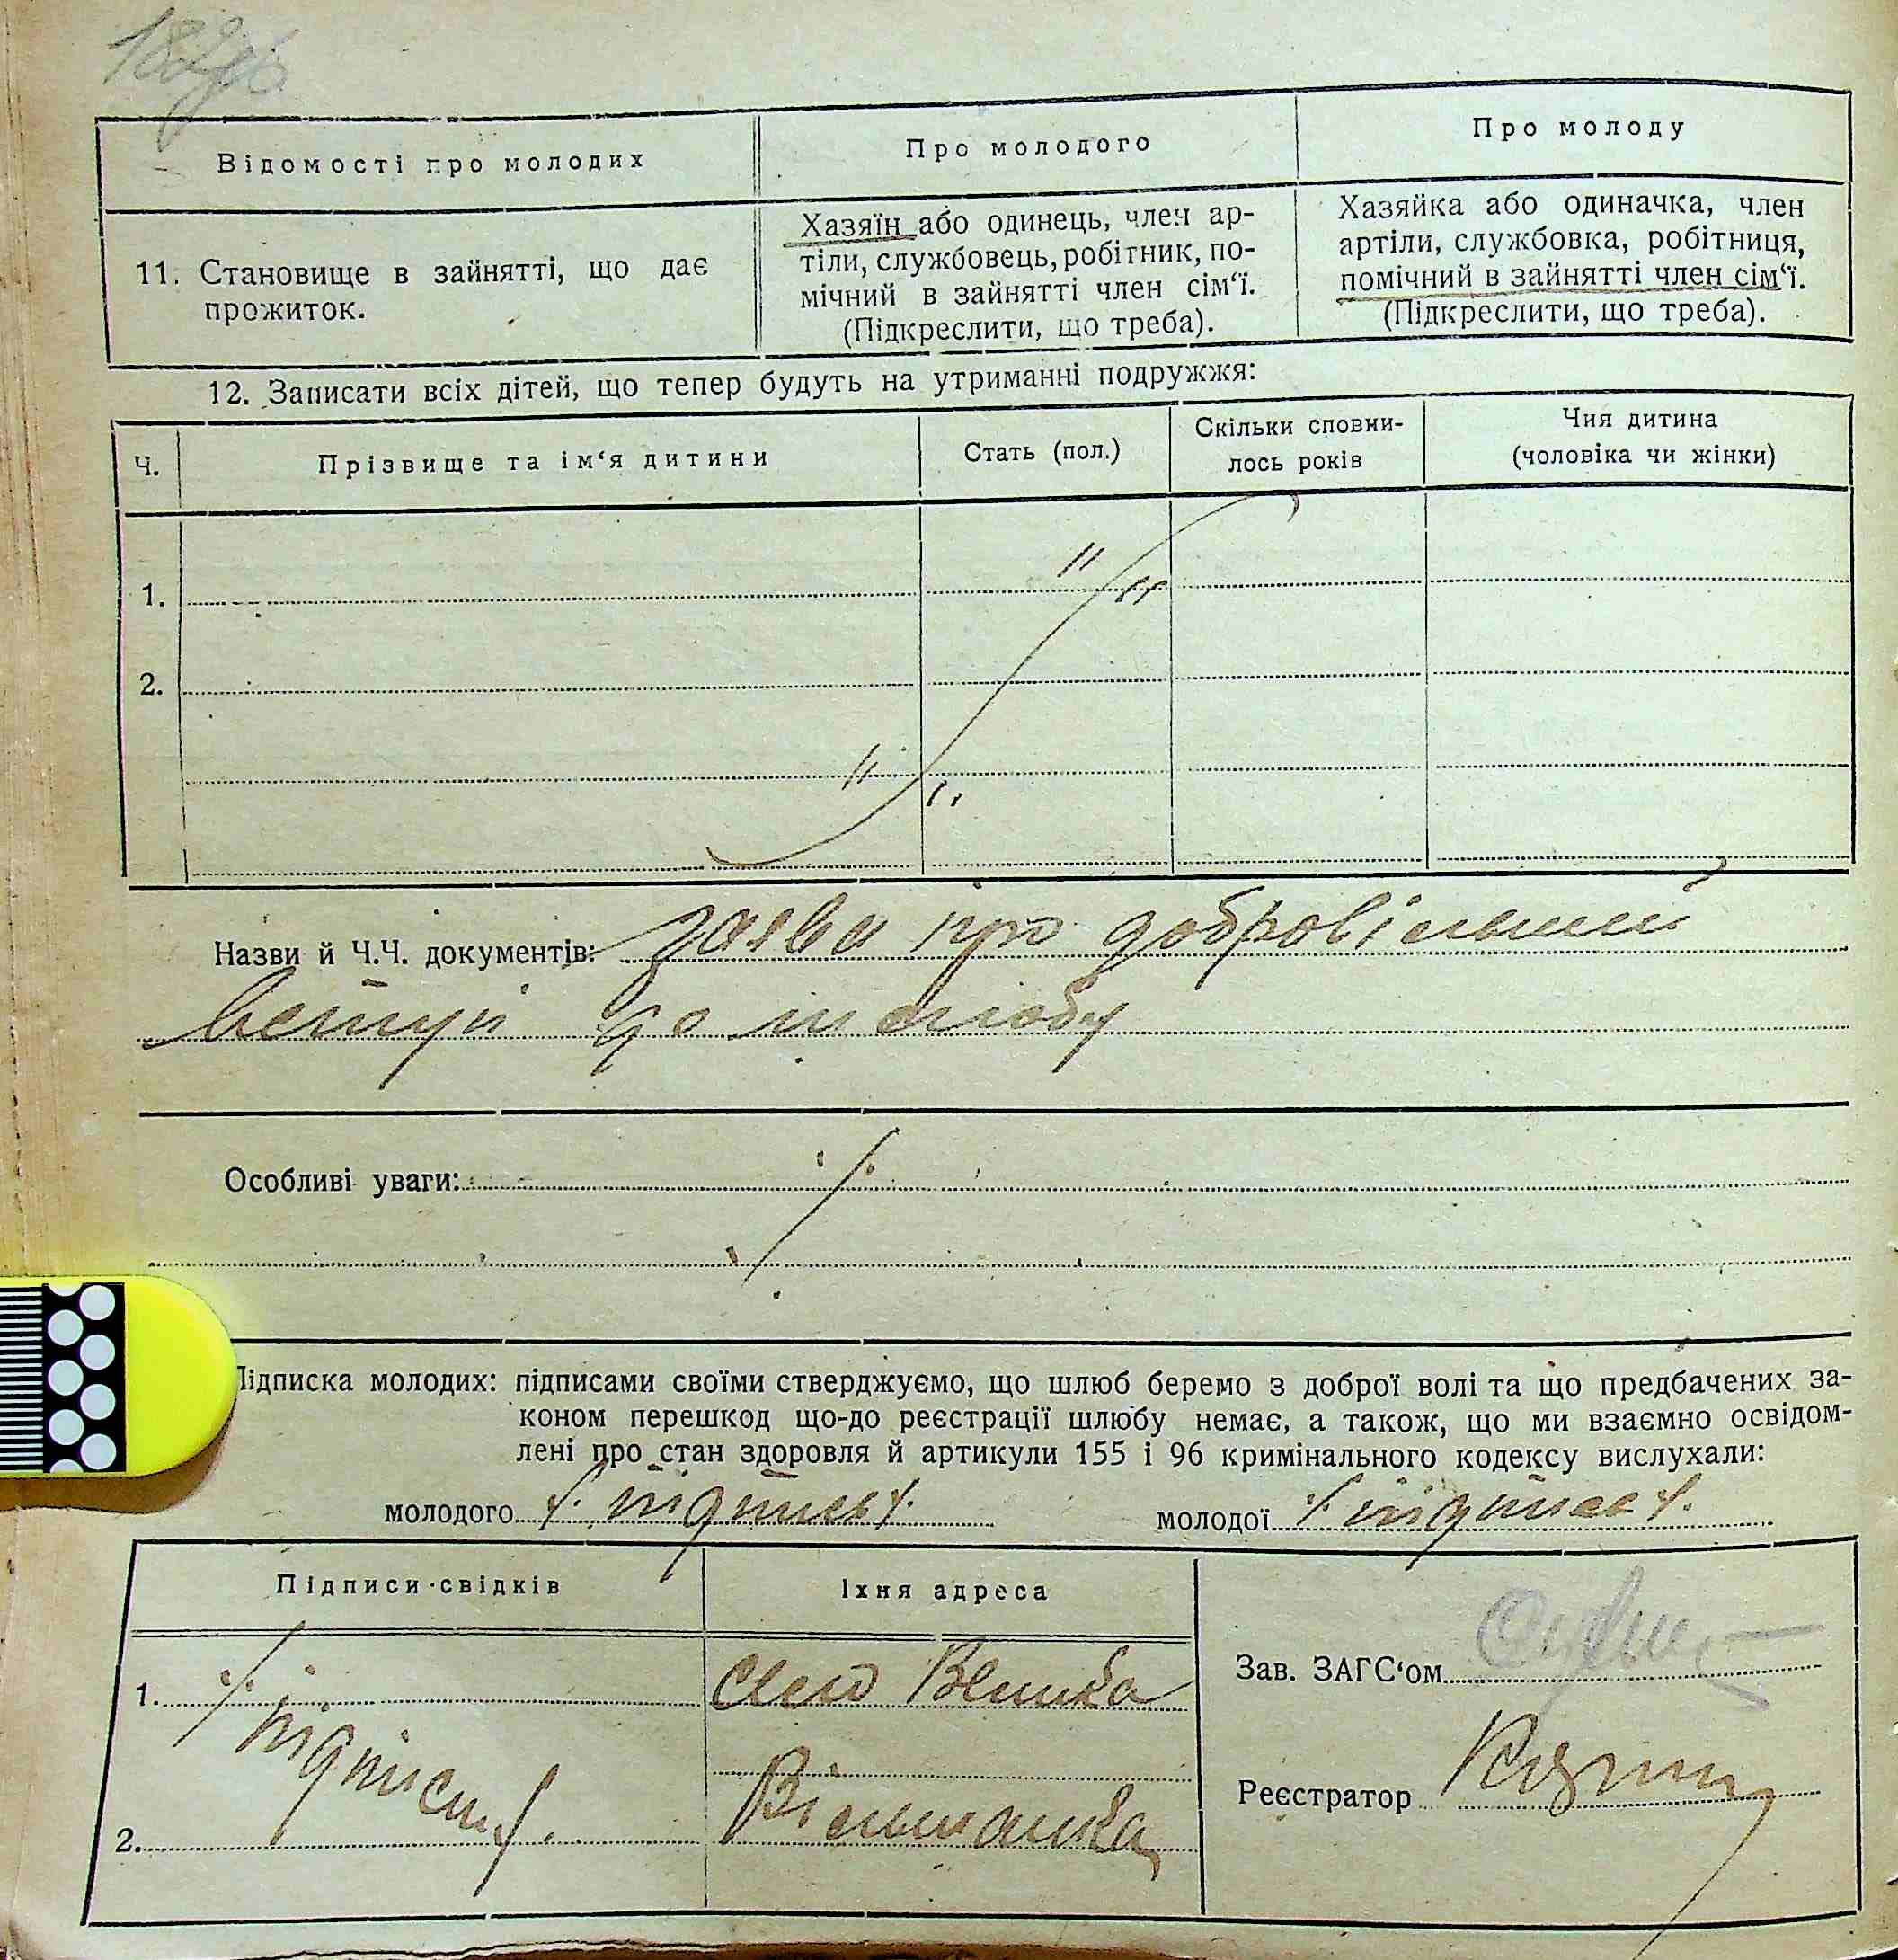 Відомості про молодих
Про молодого
Про молоду
11. Становище в зайнятті, що дає
прожиток.
Хазяїн або одинець, член ар-
тіли, службовець, робітник, по-
мічний в зайнятті член сім‘ї.
(Підкреслити, що треба).
Хазяйка або одиначка, член
артіли, службовка, робітниця,
помічний в зайнятті член сім‘ї.
(Підкреслити, що треба).
12. Записати всіх дітей, що тепер будуть на утриманні подружжя:
Ч.
Прізвище та ім‘я дитини
Стать (пол.)
Скільки сповни-
лось років
Чия дитина
(чоловіка чи жінки)
1.
2.
Назви й Ч.Ч. документів: заява про добровільний
вступ до шлюбу
Особливі уваги:
Підписка молодих: підписами своїми стверджуємо, що шлюб беремо з доброї волі та що предбачених за-
коном перешкод що-до реєстрації шлюбу немає, а також, що ми взаємно освідом-
лені про стан здоровля й артикули 155 і 96 кримінального кодексу вислухали:
молодого ⁒ підпись ⁒ молодої ⁒ підпись ⁒
Підписи свідків
Їхня адреса
1. ⁒ підписи ⁒
Село Велика
2.
Вільшанка
Зав. ЗАГС‘ом
Реєстратор